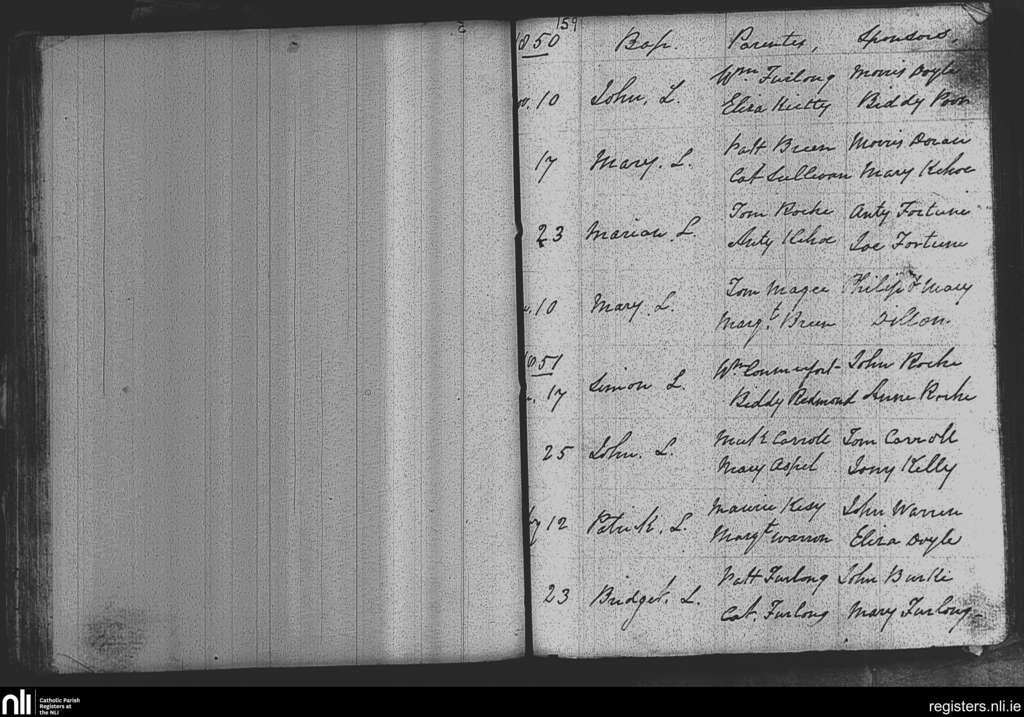 159
1850 Bap. Parents, Sponsors,
10 John, L. Wm Furlong Morris Doyle
Eliza Kielty Biddy
17 Mary. L. Patt Breen Morris Doran
Cat Sullivan Mary Kehoe
23 Marian L. Tom Roche Anty Fortune
Anty Kehoe Joe Fortune
10 Mary L. Tom Magee Philip & Mary
Margt. Breen Dillon.
1851 Wm Commerfort John Roche
17 Simon L. Biddy Redmond Anne Roche
25 John. L. Carroll Tom Carroll
Mary Aspel Tony Kelly
12 Patrick, L. Maurice John Warren
Margt Warron Eliza Doyle
23 Bridget, L. Patt Furlong John Burke
Cat. Furlong Mary Furlong
nli Catholic Parish
Registers at
the NLI
registers.nli.ie